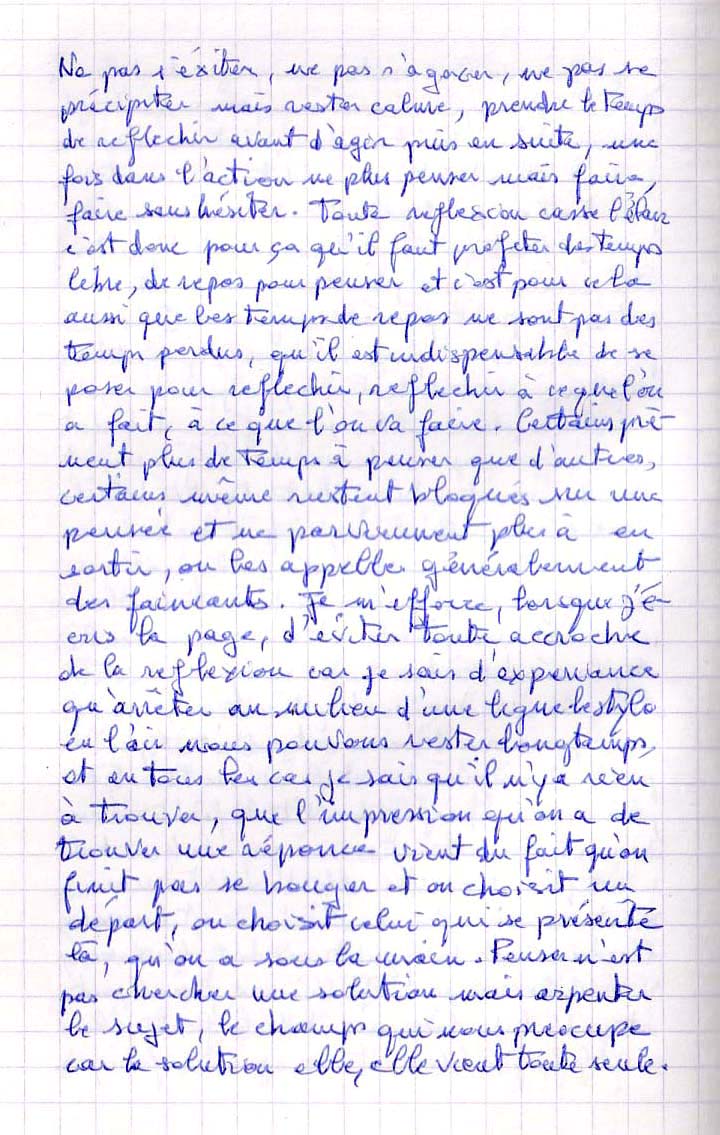 Ne pas s'éxiter, ne pas s'agacer, ne pas se
précipiter mais rester calme, prendre le temps
de reflechir avant d'agir puis en suite, une
fois dans l'action ne plus penser mais faire,
faire sans hésiter. Toute reflexion casse l'élan
c'est donc pour ça qu'il faut profiter des temps
libre, de repos pour penser et c'est pour cela
aussi que les temps de repos ne sont pas des
temps perdus, qu'il est indispensable de se
poser pour reflechir, reflechir à ce que l'on
a fait, à ce que l'on va faire. Certains prè-
nent plus de temps à penser que d'autres,
certains même restent bloqués sur une
pensée et ne parviennent plus à en
sortir, on les appelle généralement
des fainéants. Je m'efforce, lorsque j'é-
cris la page, d'éviter toute accroche
de la reflexion car je sais d'experiance
qu'arrêter au milieu d'une ligne le stylo
en l'air nous pouvons rester longtemps,
et en tous les cas je sais qu'il n'y a rien
à trouver, que l'impression qu'on a de
trouver une réponce vient du fait qu'on
finit pas se bouger et on choisit un
départ, on choisit celui qui se présente
là, qu'on a sous la main. Penser n'est
pas chercher une solution mais arpenter
le sujet, le champ qui nous préocupe
car la solution elle, elle vient toute seule.